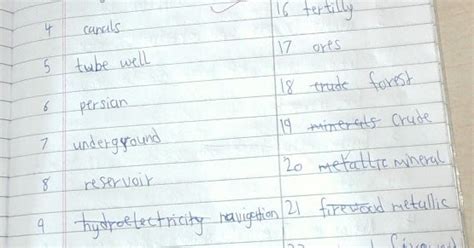 4 canals
5 tube well
6 persian
7 underground
8 reservoir
9 hydroelectricity navigation
16 fertilly
17 ores
18 crude forest
19 minerals crude
20 metallic mineral
21 firewood metallic
22